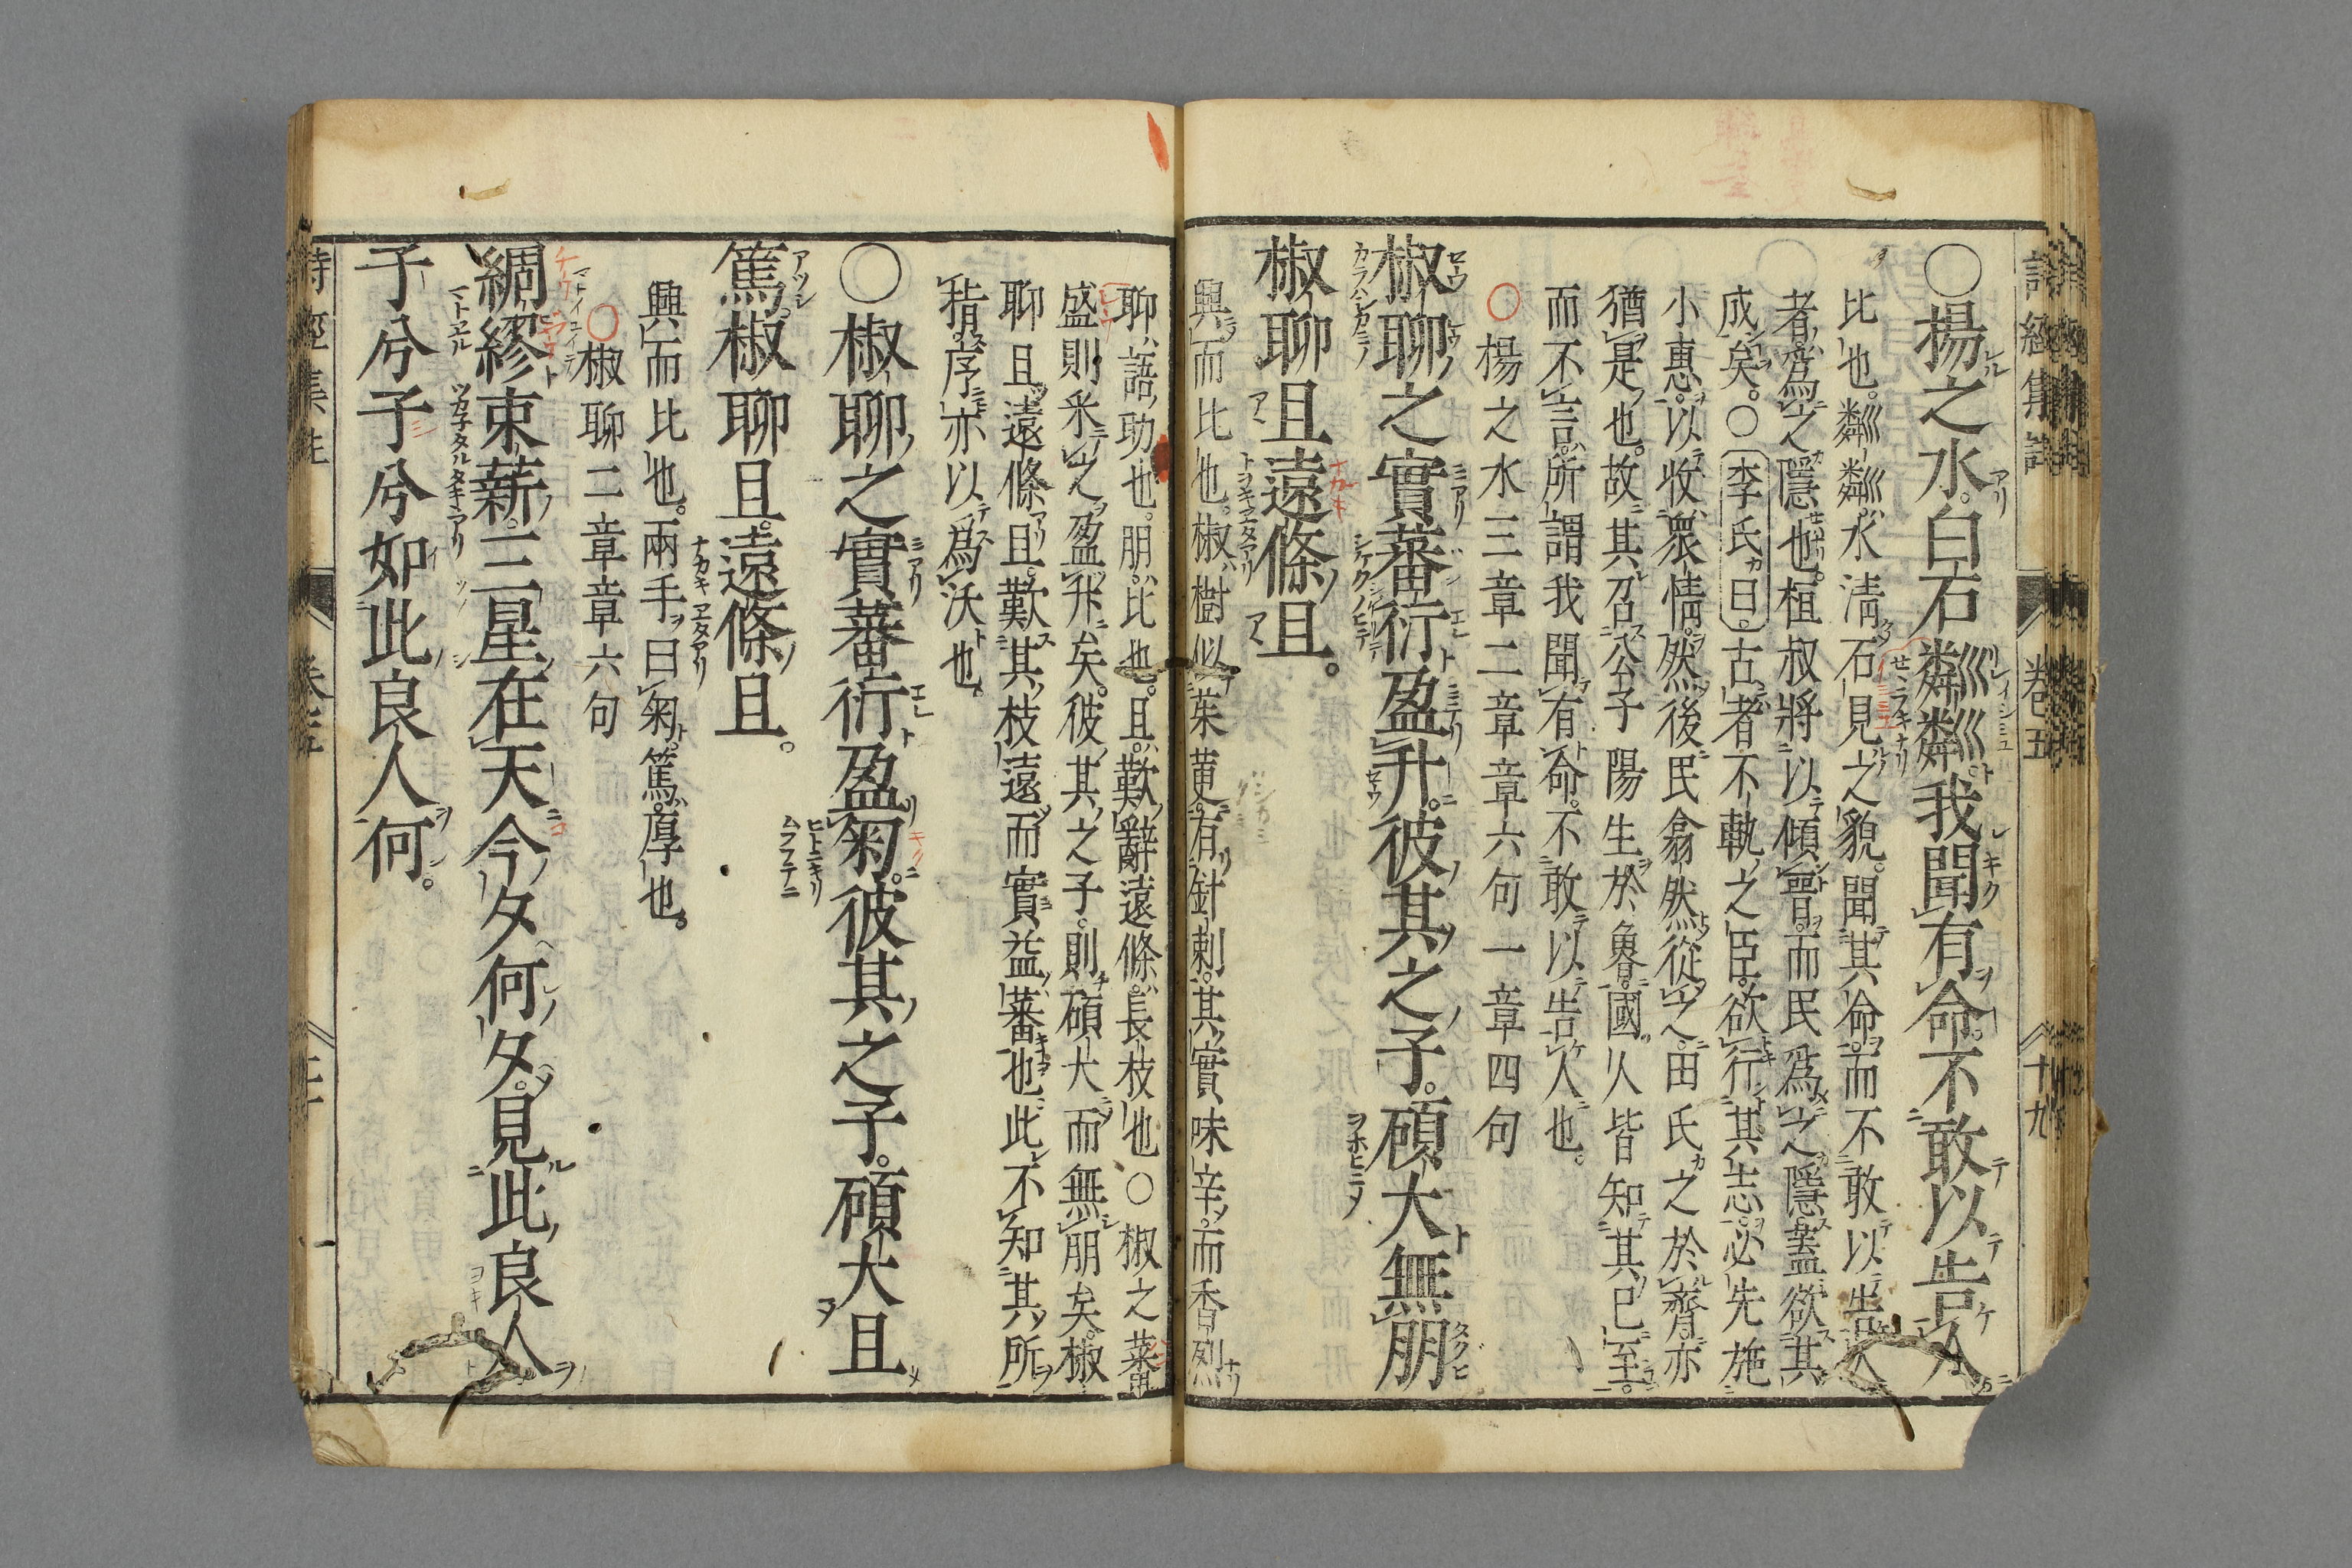 詩經集註 卷五 十九
○揚之水。白石粼粼。我聞有命。不敢以告人
比也。粼粼。水淸石見之貌。聞其命。而不敢以告人
者。爲之隱也。桓叔將以傾晉。而民爲之隱。蓋欲其
成矣。○李氏曰。古者不軌之臣。欲行其志。必先施
小惠。以收衆情。然後民翕然從之。田氏之於齊。亦
猶是也。故其召公子陽生於魯。國人皆知其已至。
而不言。所謂我聞有命。不敢以告人也。
○揚之水三章二章章六句一章四句
椒聊之實蕃衍盈升。彼其之子。碩大無朋
椒聊且遠條且。
興而比也。椒。樹似茱萸。有針刺。其實味辛。而香烈
聊。語助也。朋。比也。且。歎辭遠條。長枝也○椒之蕃
盛則釆之盈升矣。彼其之子。則碩大而無朋矣。椒
聊且。遠條且。歎其枝遠而實益蕃也。此不知其所
指。序亦以爲沃也。
○椒聊之實蕃衍盈匊。彼其之子。碩大且
篤。椒聊且。遠條且。
興而比也。兩手曰匊。篤。厚也。
○椒聊二章章六句
綢繆束薪。三星在天今夕何夕。見此良人
子兮子兮如此良人何。
詩經集註 卷五 二十